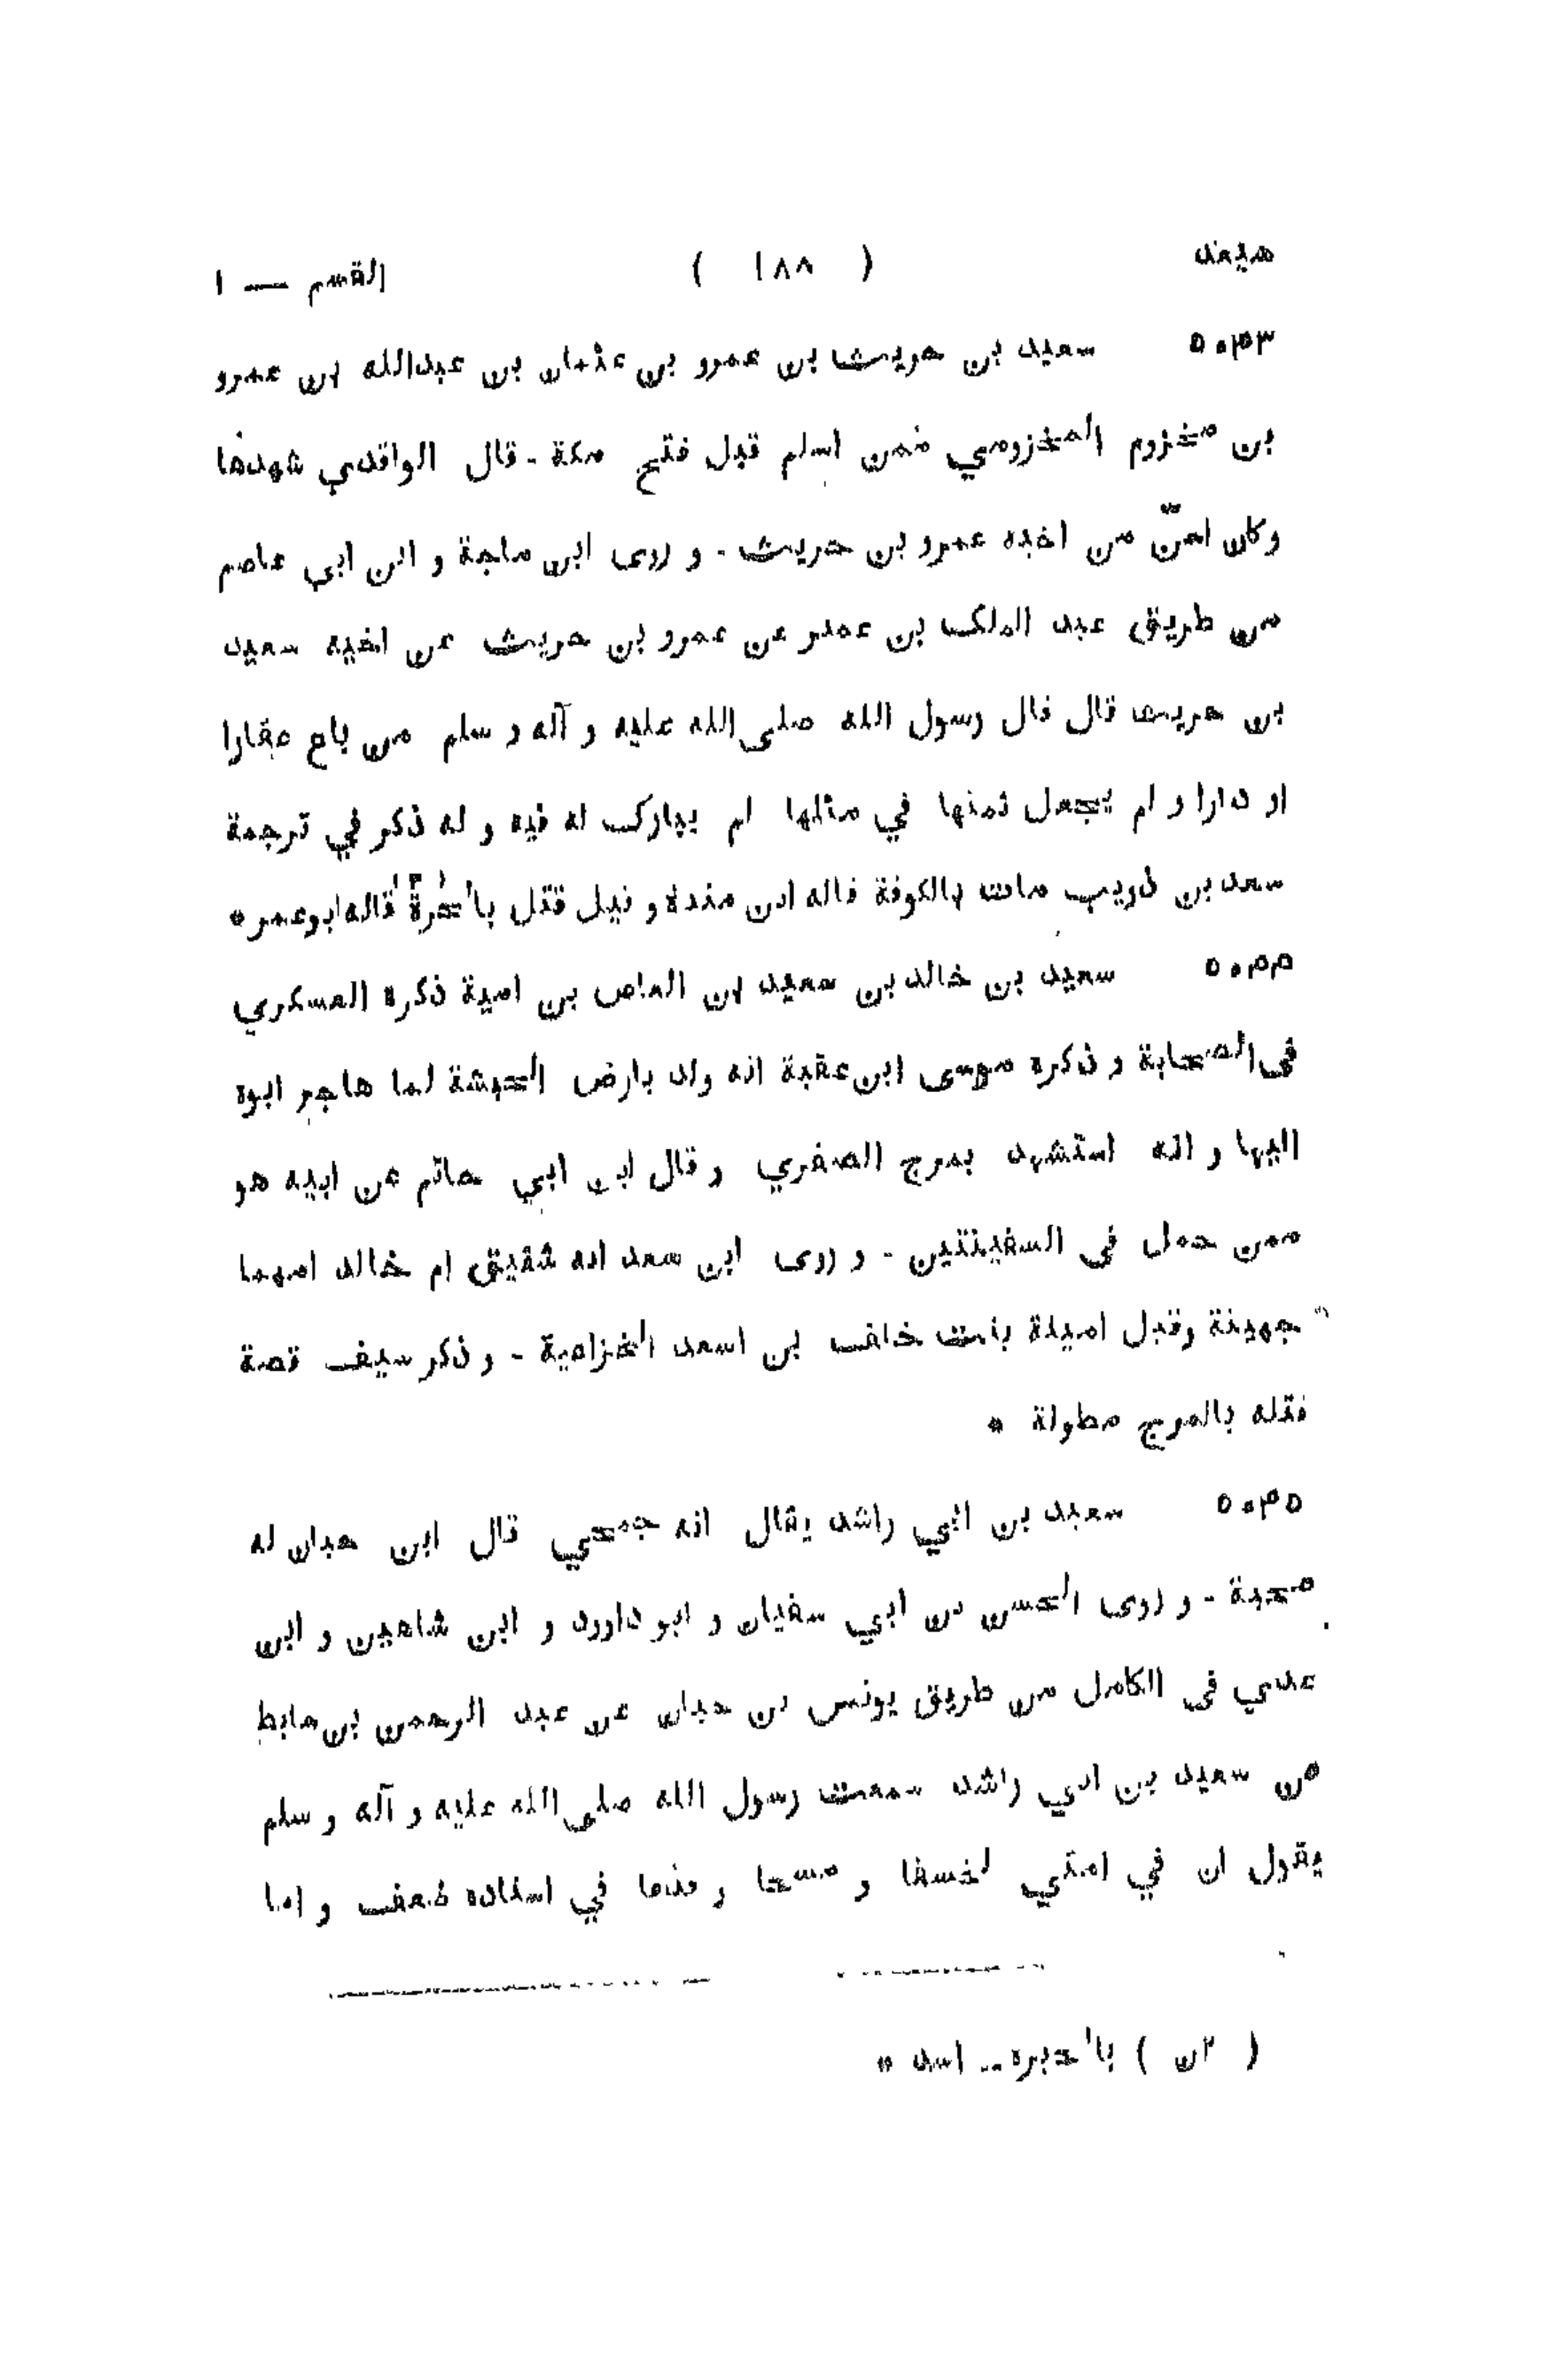 سعيد ( ١٨٨ ) القسم — ١
٥٠٣٣ سعيد بن حريث بن عمرو بن عثمان بن عبدالله بن عمرو
بن مخزوم المخزومي ممن اسلم قبل فتح مكة - قال الواقدي شهدها
وكان اسنّ من اخيه عمرو بن حريث - و روى ابن ماجة و ابن ابي عاصم
من طريق عبد الملك بن عمير عن عمرو بن حريث عن اخيه سعيد
بن حريث قال قال رسول الله صلى الله عليه و آله و سلم من باع عقارا
او دارا و لم يجعل ثمنها في مثلها لم يبارك له فيه و له ذكر في ترجمة
سعد بن ذويب مات بالكوفة قاله ابن منده و قيل قتل بالحرة قاله ابو عمر *
٥٠٣٤ سعيد بن خالد بن سعيد بن العاص بن امية ذكره العسكري
فى الصحابة و ذكره موسى ابن عقبة انه ولد بارض الحبشة لما هاجر ابوه
اليها و انه استشهد بمرج الصفري و قال ابن ابي حاتم عن ابيه هو
ممن حمل فى السفينتين - و روى ابن سعد انه شقيق ام خالد امهما
جهينة وقيل اميلة بنت خلف بن اسعد الخزاعية - و ذكر سيف قصة
قتله بالمرج مطولة *
٥٠٣٥ سعيد بن ابي راشد يقال انه جمحي قال ابن حبان له
صحبة - و روى الحسن بن ابي سفيان و ابو داوود و ابن شاهين و ابن
عدي فى الكامل من طريق يونس بن حبان عن عبد الرحمن بن سابط
عن سعيد بن ابي راشد سمعت رسول الله صلى الله عليه و آله و سلم
يقول ان في امتي لخسفا و مسخا و قذفا في اسناده ضعف و اما
( ٢ن ) بالحيره -- اسد *